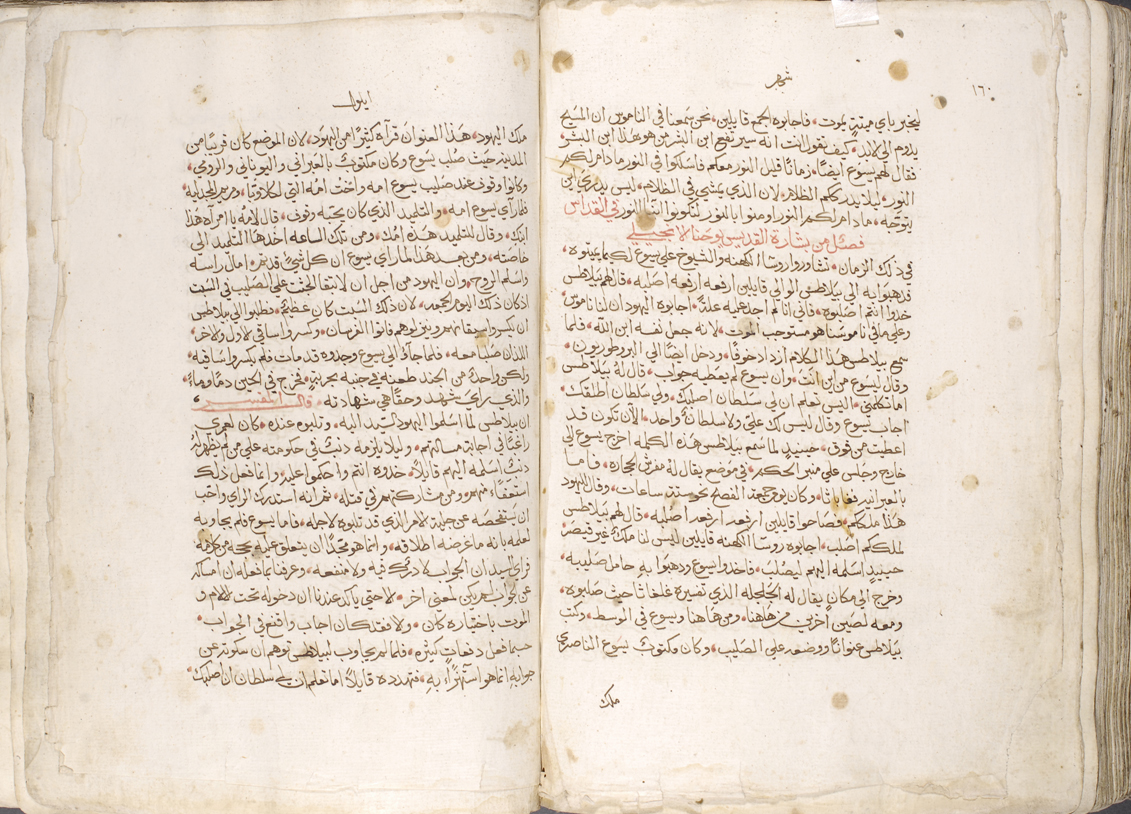 شهر
١٦٠
ليخبر باي ميتةٍ يموت، فاجابوه الجمع قايلين، نحن سمعنا في الناموس ان المسيح
يدوم الى الابد، كيف تقول انت انه سيرتفع ابن البشر من هو هذا ابن البشر،
فقال لهم يسوع ايضًا، زمانًا قليل النور معكم فاسلكوا في النور ما دام لكم
النور، ليلا يدرككم الظلام، لان الذي يمشي في الظلام، ليس يدري اين
يتوجه، ما دام لكم النور اومنوا بالنور لتكونوا ابنا النور في القداس
فصل من بشارة القديس يوحنا الانجيلي
في ذلك الزمان، تشاوروا روساء الكهنه والشيوخ على يسوع لكيما يميتوه،
قدموا به الى بيلاطس الوالي قايلين ارفعه ارفعه اصلبه، قال لهم بيلاطس
خدوا انتم اصلبوه، فاني انا لم اجد عليه علة، اجابوه اليهود ان لنا ناموس
وعلى ما في ناموسنا هو مستوجب الموت، لانه جعل نفسه ابن الله، فلما
سمع بيلاطس هذا الكلام ازداد خوفًا، ودخل ايضًا الى البروطوريون،
وقال ليسوع من اين انت، وان يسوع لم يعطيه جواب، قال له بيلاطس
اما تكلمني، اليس تعلم ان لي سلطان اصلبك، ولي سلطان اطلقك،
اجاب يسوع وقال ليس لك عليّ ولا سلطانٌ واحد، الا ان تكون قد
اعطيت من فوق، حينيدٍ لما سمع بيلاطس هذه الكلمه اخرج يسوع الى
خارج وجلس على منبر الحكم، في موضع يقال له مفرش الحجاره، فاما
بالعبرانيه فغاباثا، وكان يوم جمعة الفصح نحو ستة ساعات، وقال لليهود
هذا ملككم، فصاحوا قايلين ارفعه ارفعه اصلبه، قال لهم بيلاطس
لملككم اصلب، اجابوه روسا الكهنه قايلين ليس لنا ملكٌ غير قيصر
حينيدٍ اسلمه اليهم ليصلب، فاخدوا يسوع ودهبوا به حامل صليبه،
وخرج الى مكانٍ يقال له الجلجله الذي تفسيره غلغاثا حيث صلبوه،
ومعه لصين اخرين من هاهنا، ومن هاهنا ويسوع في الوسط، وكتب
بيلاطس عنوانًا ووضعه على الصليب، وكان مكتوبٌ يسوع الناصري
ملك
ايلول
ملك اليهود، هذا العنوان قرآه كثيرًا من اليهود، لان الموضع كان قريبًا من
المدينه حيث صُلب يسوع وكان مكتوبٌ بالعبراني واليوناني والرومي،
وكانوا وقوف عند صليب يسوع امه واخت امه التي لكلاوفا، ومريم المجدليه
فلما رآى يسوع امه، والتلميد الذي كان يحبه وقوف، قال لامه يا امراه هذا
ابنك، وقال للتلميد هذه امك، ومن تلك الساعه اخدها التلميد الى
خاصته، ومن بعد هذا لما راى يسوع ان كل شيٍ قد تم، امال راسه
واسلم الروح، وان اليهود من اجل ان لا تبقا الجثث على الصليب في السبت
اذ كان ذلك اليوم الجمعه، لان ذلك السبت كان عظيمًا، فطلبوا الى بيلاطس
ان يكسروا سيقانهم وينزلوهم فاتوا الفرسان، وكسروا ساقي الاول والاخر،
اللذان صلبا معه، فلما جآوا الى يسوع وجدوه قد مات فلم يكسروا ساقيه،
لاكن واحدٌ من الجند طعنه في جنبه بحربةٍ، فخرج في الحين دمٌ وماءٌ،
والذي راى شهد وحقًا هي شهادته، قال المفسر،
ان بيلاطس لما اسلموا اليهود السيد اليه، وتلبوه عنده، كان لعمري
راغبًا في اجابة مسالتهم، وليلا يلزمه دنبٌ في حكومته على من لم يظهر له
دنبٌ اسلمه اليهم قايلًا، خدوه انتم واحكموا عليه وانما فعل ذلك
استعفاء منهم ومن مشاركتهم في قتله، ثم انه استدرك الراي واحب
ان يستفحصه عن جلية الامر الذي قد تلبوه لاجله، فاما يسوع فلم يجاوبه
لعلمه بانه ما غرضه اطلاقه، وانما هو مجدًا ان يتعلق عليه بحجه من كلامه
فراى السيد ان الجواب لا درك فيه ولا منفعه، وعرفنا بما فعله ان امساكه
عن الجواب لم يكن لمعنى اخر، الا حتى ياكد عندنا ان دخوله تحت الالام و
الموت باختياره كان، والا فقد كان اجاب واقنع في الجواب،
حسبما فعل دفعاتٍ كثيره، فلما لم يجاوب لبيلاطس توهم ان سكوته عن
جوابه انما هو استهزاءٌ به، فتهدده قايلًا اما تعلم ان لي سلطان ان اصلبك،